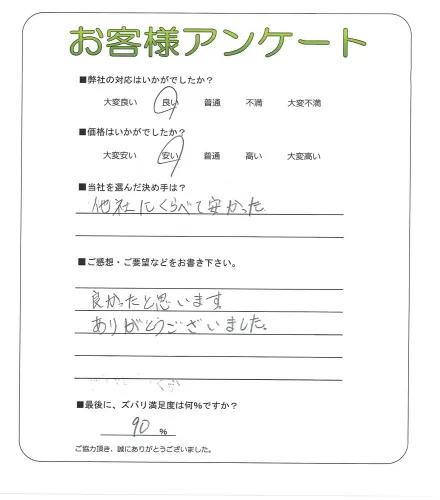 お客様アンケート
■弊社の対応はいかがでしたか？
大変良い 良い 普通 不満 大変不満
■価格はいかがでしたか？
大変安い 安い 普通 高い 大変高い
■当社を選んだ決め手は？
他社にくらべて安かった
■ご感想・ご要望などをお書き下さい。
良かったと思います
ありがとうございました。
■最後に、ズバリ満足度は何％ですか？
90 ％
ご協力頂き、誠にありがとうございました。